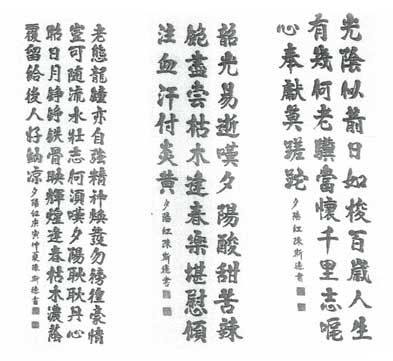 光陰似箭日如梭百歲人生
有幾何老驥當懷千里志嘔
心奉獻莫蹉跎
夕陽紅陳斯德書
韶光易逝嘆夕陽酸甜苦辣
飽盡嘗枯木逢春樂堪慰傾
注血汗付炎黄
夕陽紅陳斯德書
老態龍鍾亦自強精神煥發勿徬徨豪情
豈可隨流水壯志何須嘆夕陽耿耿丹心
昭日月錚錚鐵骨映輝煌逢春枯木濃蔭
覆留給後人好納凉
夕陽紅庚寅仲夏陳斯德書